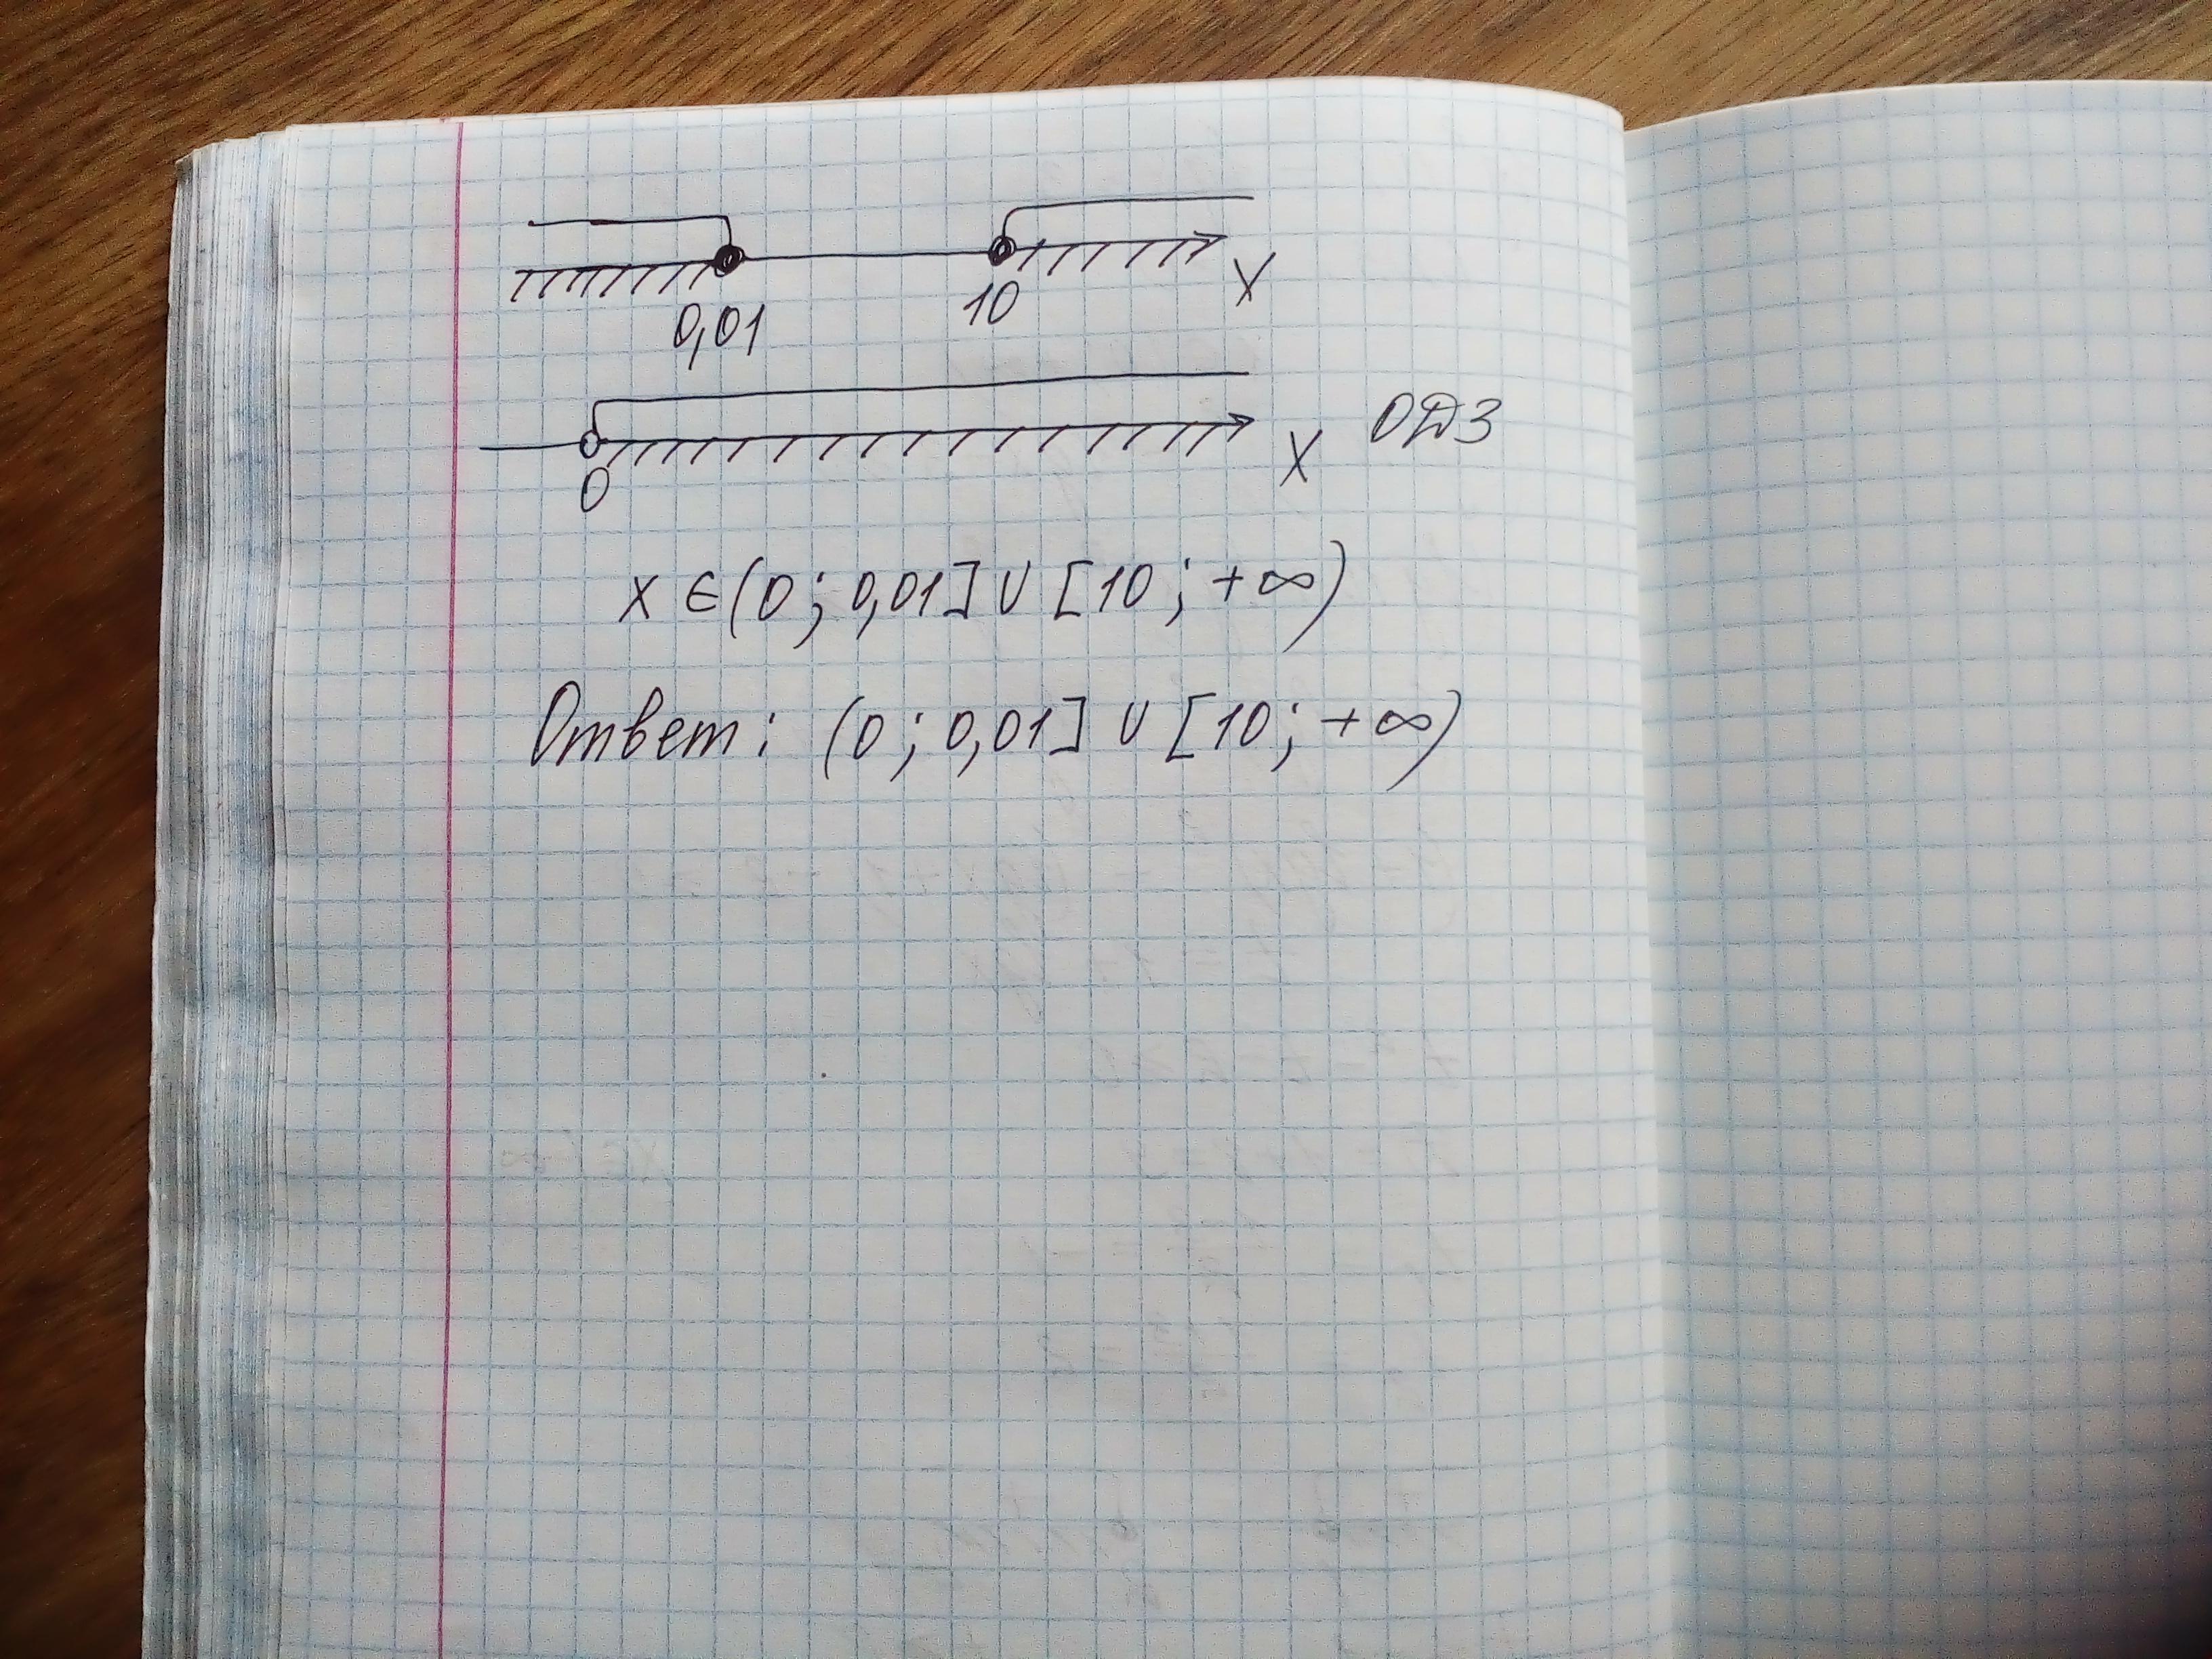 0,01 10 X
0 X ОДЗ
X ∈ (0; 0,01] ∪ [10; +∞)
Ответ: (0; 0,01] ∪ [10; +∞)